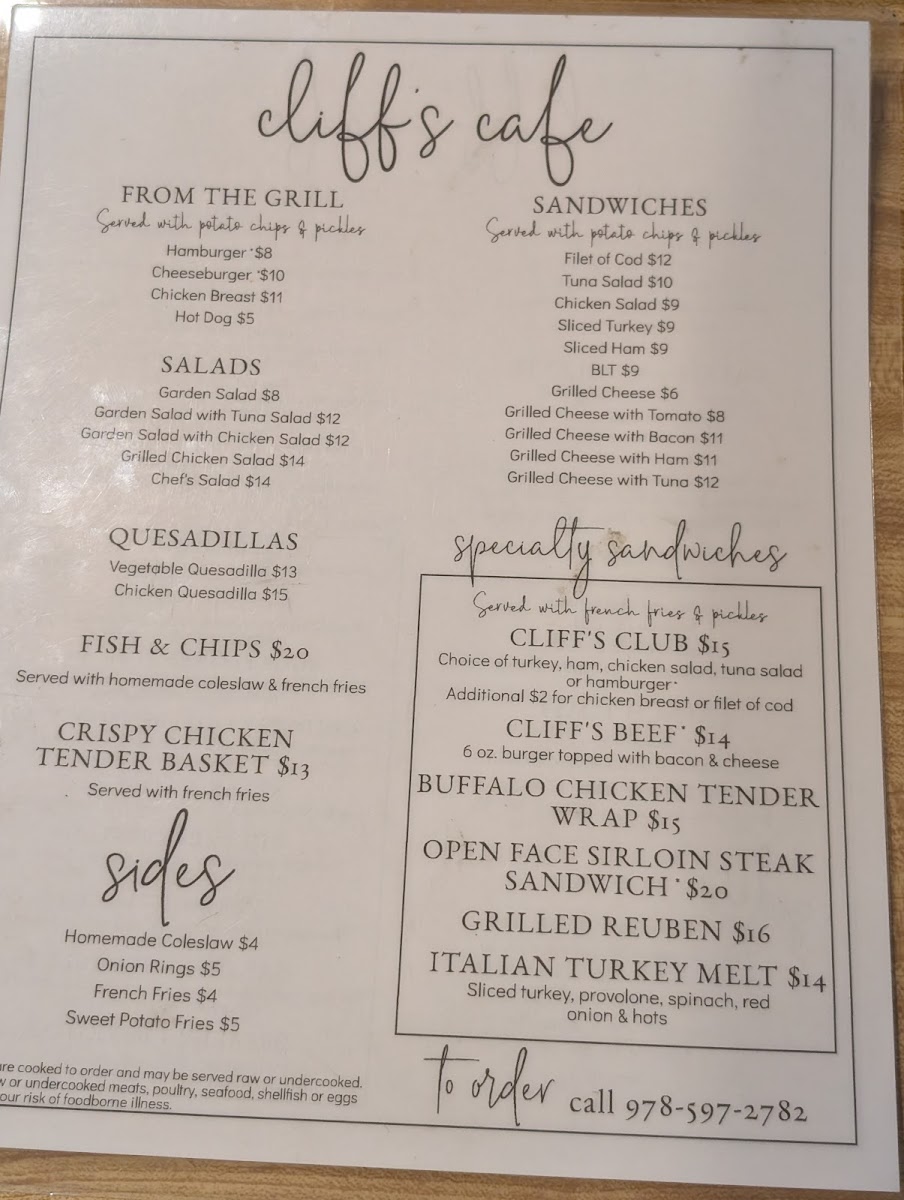 cliff's cafe
FROM THE GRILL
Served with potato chips & pickles
Hamburger *$8
Cheeseburger *$10
Chicken Breast $11
Hot Dog $5
SALADS
Garden Salad $8
Garden Salad with Tuna Salad $12
Garden Salad with Chicken Salad $12
Grilled Chicken Salad $14
Chef's Salad $14
QUESADILLAS
Vegetable Quesadilla $13
Chicken Quesadilla $15
FISH & CHIPS $20
Served with homemade coleslaw & french fries
CRISPY CHICKEN
TENDER BASKET $13
Served with french fries
sides
Homemade Coleslaw $4
Onion Rings $5
French Fries $4
Sweet Potato Fries $5
are cooked to order and may be served raw or undercooked.
w or undercooked meats, poultry, seafood, shellfish or eggs
our risk of foodborne illness.
SANDWICHES
Served with potato chips & pickles
Filet of Cod $12
Tuna Salad $10
Chicken Salad $9
Sliced Turkey $9
Sliced Ham $9
BLT $9
Grilled Cheese $6
Grilled Cheese with Tomato $8
Grilled Cheese with Bacon $11
Grilled Cheese with Ham $11
Grilled Cheese with Tuna $12
specialty sandwiches
Served with french fries & pickles
CLIFF'S CLUB $15
Choice of turkey, ham, chicken salad, tuna salad
or hamburger*
Additional $2 for chicken breast or filet of cod
CLIFF'S BEEF* $14
6 oz. burger topped with bacon & cheese
BUFFALO CHICKEN TENDER
WRAP $15
OPEN FACE SIRLOIN STEAK
SANDWICH * $20
GRILLED REUBEN $16
ITALIAN TURKEY MELT $14
Sliced turkey, provolone, spinach, red
onion & hots
to order call 978-597-2782